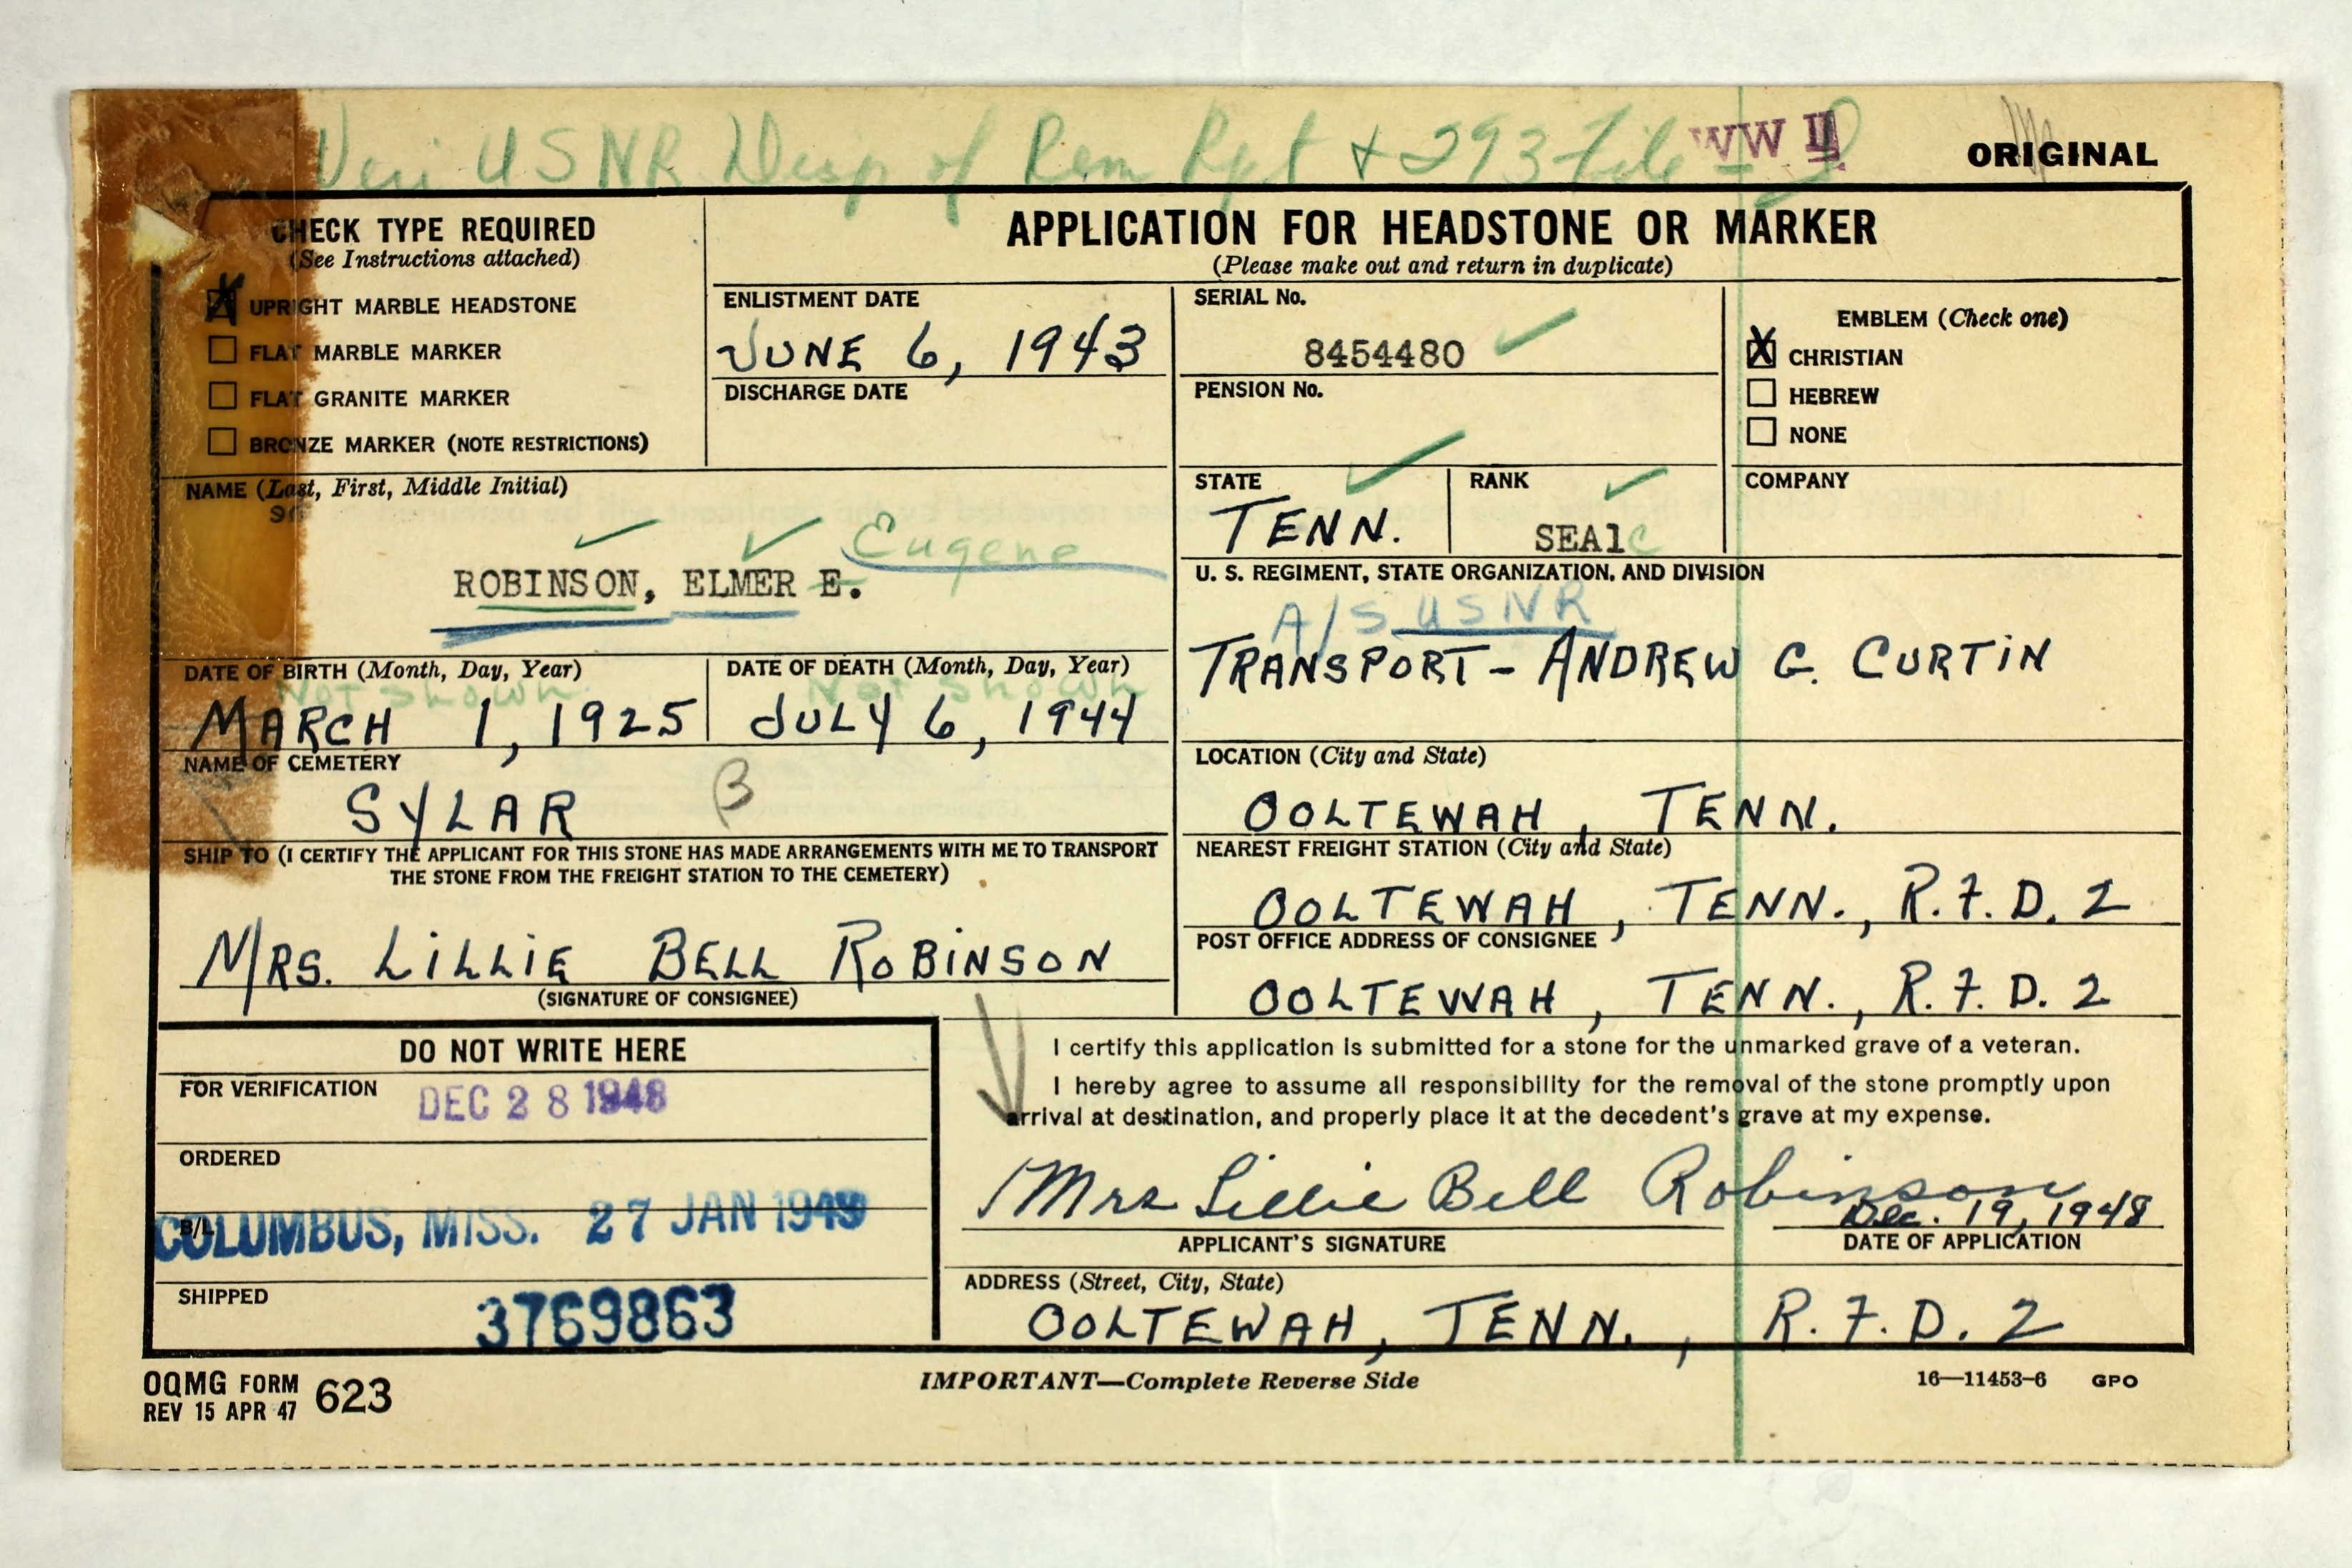 Veri USNR Disp of Rem Rpt + 293 File
WW II
ORIGINAL
CHECK TYPE REQUIRED
(See Instructions attached)
X UPRIGHT MARBLE HEADSTONE
FLAT MARBLE MARKER
FLAT GRANITE MARKER
BRONZE MARKER (NOTE RESTRICTIONS)
APPLICATION FOR HEADSTONE OR MARKER
(Please make out and return in duplicate)
ENLISTMENT DATE
JUNE 6, 1943
DISCHARGE DATE
SERIAL No.
8454480
PENSION No.
EMBLEM (Check one)
X CHRISTIAN
HEBREW
NONE
NAME (Last, First, Middle Initial)
Eugene
ROBINSON, ELMER E.
STATE
TENN.
RANK
SEA1c
COMPANY
U. S. REGIMENT, STATE ORGANIZATION, AND DIVISION
A/S USNR
TRANSPORT - ANDREW G. CURTIN
DATE OF BIRTH (Month, Day, Year)
Not Shown
MARCH 1, 1925
DATE OF DEATH (Month, Day, Year)
Not Shown
JULY 6, 1944
NAME OF CEMETERY
SYLAR
B
LOCATION (City and State)
OOLTEWAH, TENN.
SHIP TO (I CERTIFY THE APPLICANT FOR THIS STONE HAS MADE ARRANGEMENTS WITH ME TO TRANSPORT
THE STONE FROM THE FREIGHT STATION TO THE CEMETERY)
MRS. LILLIE BELL ROBINSON
(SIGNATURE OF CONSIGNEE)
NEAREST FREIGHT STATION (City and State)
OOLTEWAH, TENN., R.F.D. 2
POST OFFICE ADDRESS OF CONSIGNEE
OOLTEWAH, TENN., R.F.D. 2
DO NOT WRITE HERE
FOR VERIFICATION
DEC 28 1948
ORDERED
B/L
COLUMBUS, MISS. 27 JAN 1949
SHIPPED
3769863
I certify this application is submitted for a stone for the unmarked grave of a veteran.
I hereby agree to assume all responsibility for the removal of the stone promptly upon
arrival at destination, and properly place it at the decedent's grave at my expense.
Mrs Lillie Bell Robinson
Dec. 19, 1948
APPLICANT'S SIGNATURE
DATE OF APPLICATION
ADDRESS (Street, City, State)
OOLTEWAH, TENN., R.F.D. 2
OQMG FORM 623
REV 15 APR 47
IMPORTANT—Complete Reverse Side
16—11453-6 GPO